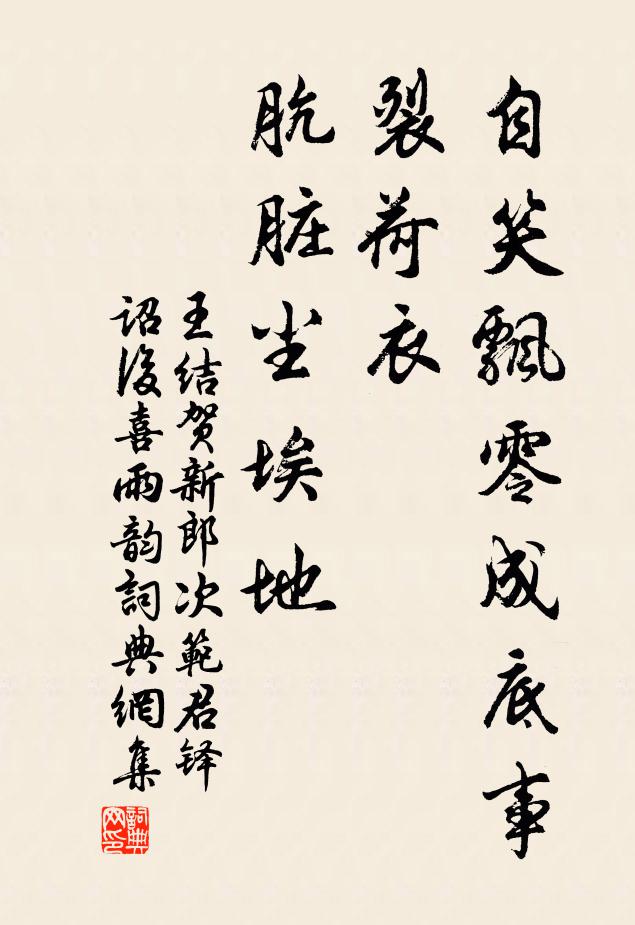 自笑飄零成底事
裂荷衣
肮脏尘埃地
王结贺新郎次範君铎
诏後喜雨韵詞典網集
詞典网印